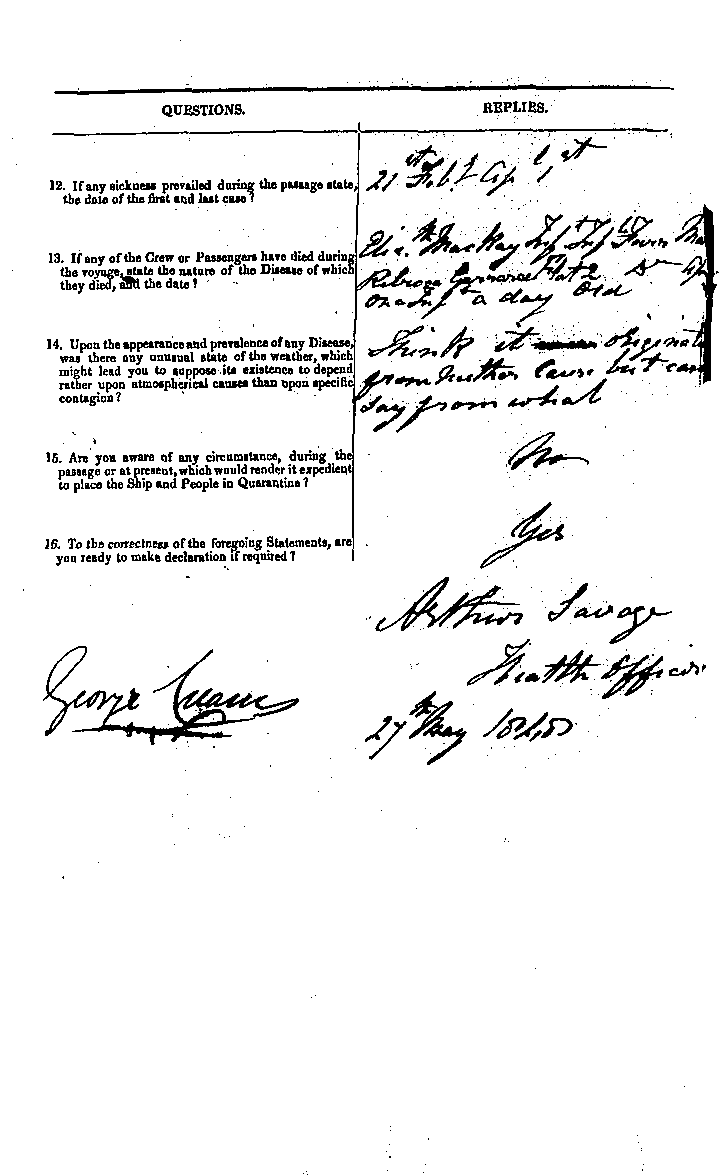 QUESTIONS.
REPLIES.
12. If any sickness prevailed during the passage state,
the date of the first and last case?
21st Feby Ap 1st
13. If any of the Crew or Passengers have died during
the voyage, state the nature of the Disease of which
they died, and the date?
Eliz.th MacKay Inft Inft Fever
Rebecca
a day old
14. Upon the appearance and prevalence of any Disease,
was there any unusual state of the weather, which
might lead you to suppose its existence to depend
rather upon atmospherical causes than upon specific
contagion?
Think it originate
from neither Cause but can
say from what
15. Are you aware of any circumstance, during the
passage or at present, which would render it expedient
to place the Ship and People in Quarantine?
No
16. To the correctness of the foregoing Statements, are
you ready to make declaration if required?
Yes
Arthur Savage
Health Officer
George
27th May